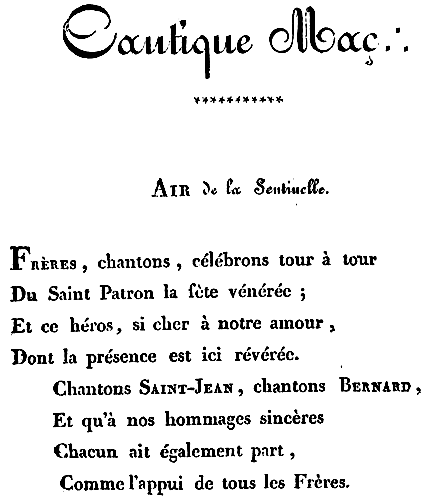 Cantique Maç∴
AIR de la Sentinelle.
FRÈRES, chantons, célébrons tour à tour
Du Saint Patron la fête vénérée ;
Et ce héros, si cher à notre amour,
Dont la présence est ici révérée.
Chantons SAINT-JEAN, chantons BERNARD,
Et qu'à nos hommages sincères
Chacun ait également part,
Comme l'appui de tous les Frères.